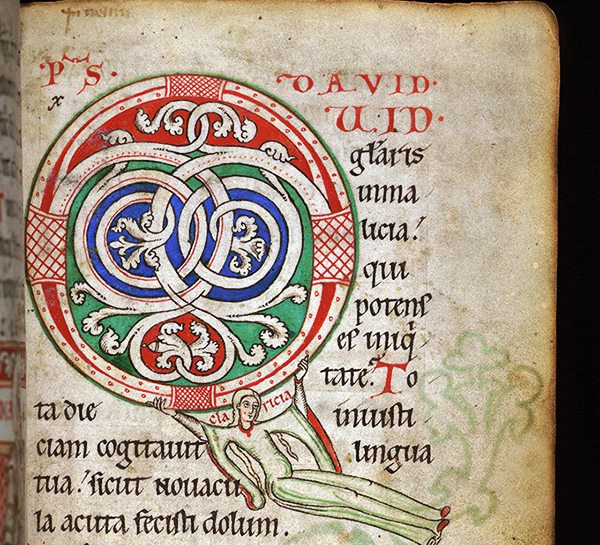 PS. DAVID.
QUID.
gl̄aris
inma
licia?
qui
potens
es iniq̇
tate? To
ta die iniusti
claricia
ciam cogitauit lingua
tua. sicut nouacu
la acuta fecisti dolum.